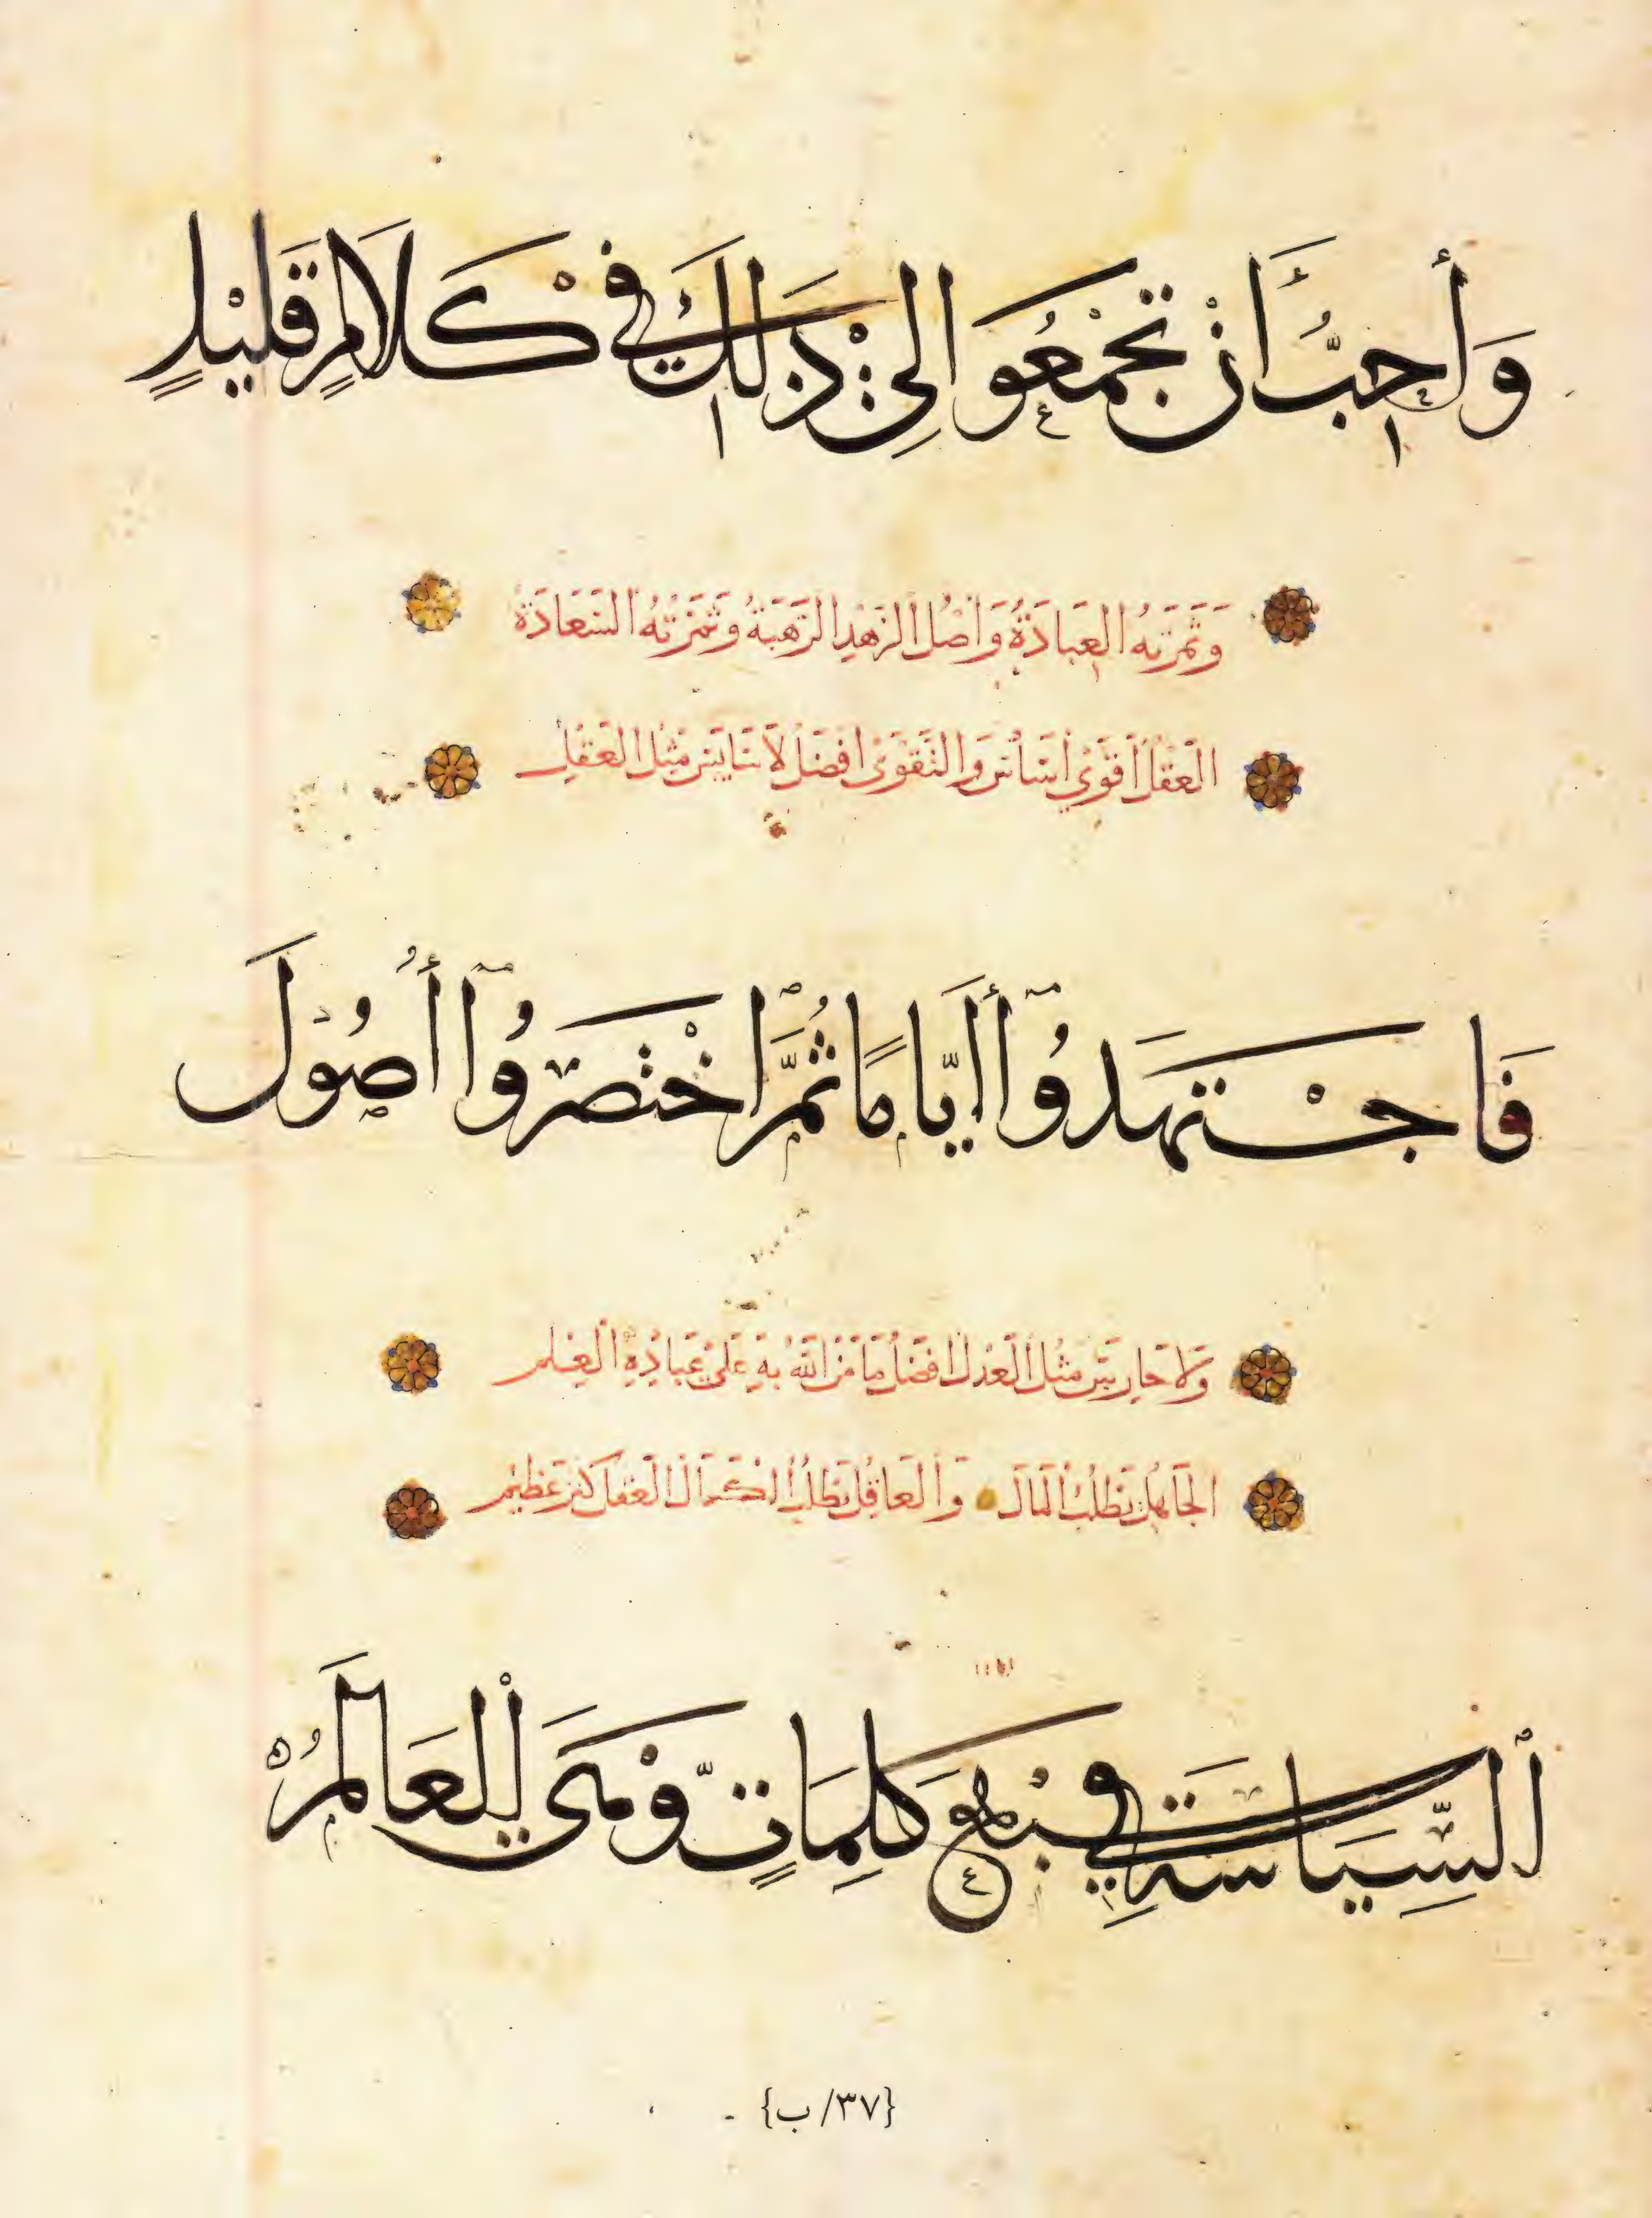 وَأُحِبُّ أَنْ تَجْمَعُوا لِيْ ذَلِكَ فِي كَلَامٍ قَلِيْلٍ
وَثَمَرَتُهُ العِبَادَةُ وَاَصْلُ الزُهْدِ الرَّهْبَةُ وَثَمَرَتُهُ السَّعَادَةُ
اَلْعَقْلُ اَقْوَى اَسَاسٍ وَالتَّقْوَى اَفْضَلُ لَا سَايِسَ مِثْلُ الْعَقْلِ
فَاجْتَهَدُوْا أَيَّامًا ثُمَّ اخْتَصَرُوْا أُصُوْلَ
وَلَا حَارِسَ مِثْلُ الْعَدْلِ اَفْضَلُ مَا مَنَّ اللهُ بِهِ عَلَى عِبَادِهِ الْعِلْم
اَلْجَاهِلُ يَطْلُبُ الْمَالَ وَالْعَاقِلُ يَطْلُبُ الْكَمَالَ الْعَقْلُ كَنْزٌ عَظِيْم
اَلسِّيَاسَةِ فِي سَبْعِ كَلِمَاتٍ وَّهِيَ الْعَالَمُ
{٣٧/ ب}